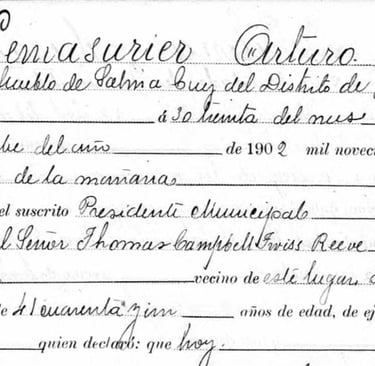 emasurier Arturo.
pueblo de Salina Cruz del Distrito de
á 30 treinta del mes
bre del año de 1902 mil novec
de la mañana
el suscrito Presidente Municipal
l Señor Thomas Campbell Twiss Reeve
vecino de este lugar
e 41 cuarenta y un años de edad, de ej
quien declaró: que hoy.